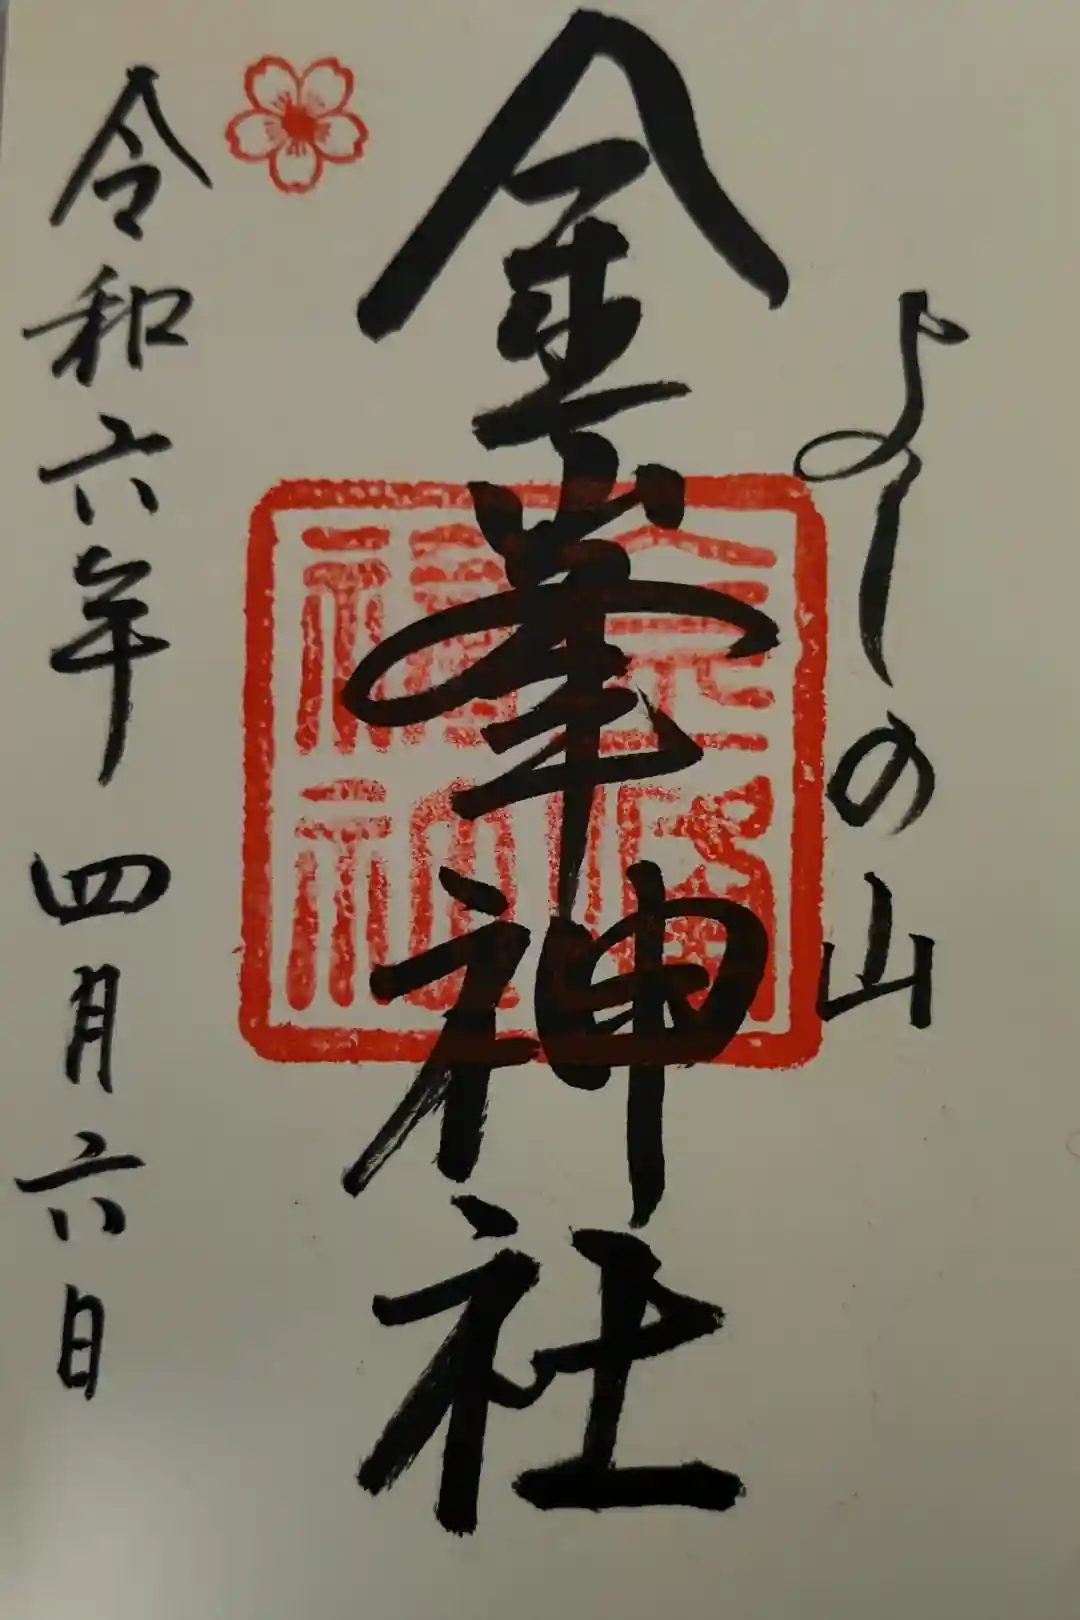 よしの山
金峯神社
令和六年四月六日